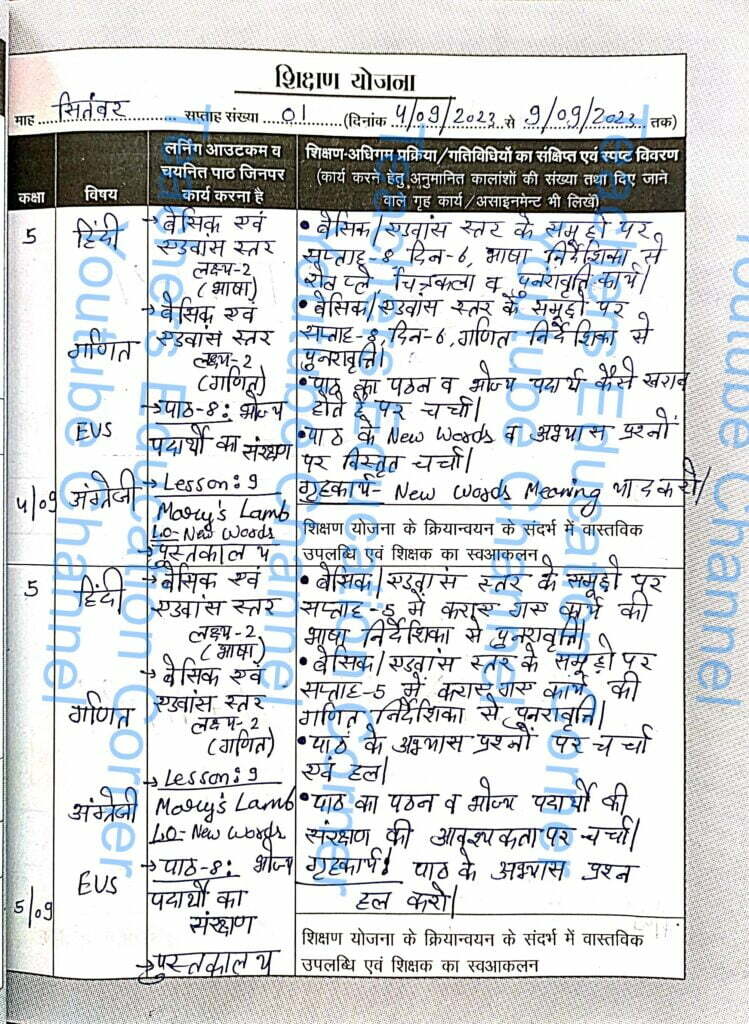 शिक्षण योजना
माह सितंबर सप्ताह संख्या 01 (दिनांक 4/09/2023 से 9/09/2023 तक)
कक्षा
विषय
लर्निंग आउटकम व
चयनित पाठ जिनपर
कार्य करना है
शिक्षण-अधिगम प्रक्रिया/गतिविधियों का संक्षिप्त एवं स्पष्ट विवरण
(कार्य करने हेतु अनुमानित कालांशों की संख्या तथा दिए जाने
वाले गृह कार्य/असाइनमेंट भी लिखें)
5
4/09
हिंदी
गणित
EVS
अंग्रेजी
→ बेसिक एवं
एडवांस स्तर
लक्ष्य-2
(भाषा)
→ बेसिक एवं
एडवांस स्तर
लक्ष्य-2
(गणित)
→ पाठ-8: भोज्य
पदार्थो का संरक्षण
→ Lesson: 9
Mary's Lamb
LO- New Words
→ पुस्तकालय
• बेसिक/एडवांस स्तर के समूहो पर
सप्ताह-8 दिन-6, भाषा निर्देशिका से
रोल प्ले चित्रकला व पुनरावृति कार्य।
• बेसिक/एडवांस स्तर के समूहो पर
सप्ताह-8, दिन-6, गणित निर्देशिका से
पुनरावृत्ति।
• पाठ का पठन व भोज्य पदार्थ कैसे खराब
होते है पर चर्चा।
• पाठ के New Words व अभ्यास प्रश्नों
पर विस्तृत चर्चा।
गृहकार्य- New Words Meaning याद करो।
शिक्षण योजना के क्रियान्वयन के संदर्भ में वास्तविक
उपलब्धि एवं शिक्षक का स्वआकलन
5
5/09
हिंदी
गणित
अंग्रेजी
EVS
→ बेसिक एवं
एडवांस स्तर
लक्ष्य-2
(भाषा)
→ बेसिक एवं
एडवांस स्तर
लक्ष्य-2
(गणित)
→ Lesson: 9
Mary's Lamb
LO- New Words
→ पाठ-8: भोज्य
पदार्थो का
संरक्षण
→ पुस्तकालय
• बेसिक/एडवांस स्तर के समूहो पर
सप्ताह-5 में कराए गए कार्य की
भाषा निर्देशिका से पुनरावृत्ति।
• बेसिक/एडवांस स्तर के समूहो पर
सप्ताह-5 में कराए गए कार्य की
गणित निर्देशिका से पुनरावृत्ति।
• पाठ के अभ्यास प्रश्नों पर चर्चा
एवं हल।
• पाठ का पठन व भोज्य पदार्थो की
संरक्षण की आवश्यकता पर चर्चा।
गृहकार्य: पाठ के अभ्यास प्रश्न
हल करो।
शिक्षण योजना के क्रियान्वयन के संदर्भ में वास्तविक
उपलब्धि एवं शिक्षक का स्वआकलन
Teachers Education Corner
Youtube Channel
Teachers Education Corner
Youtube Channel
Teachers Education Corner
Youtube Channel